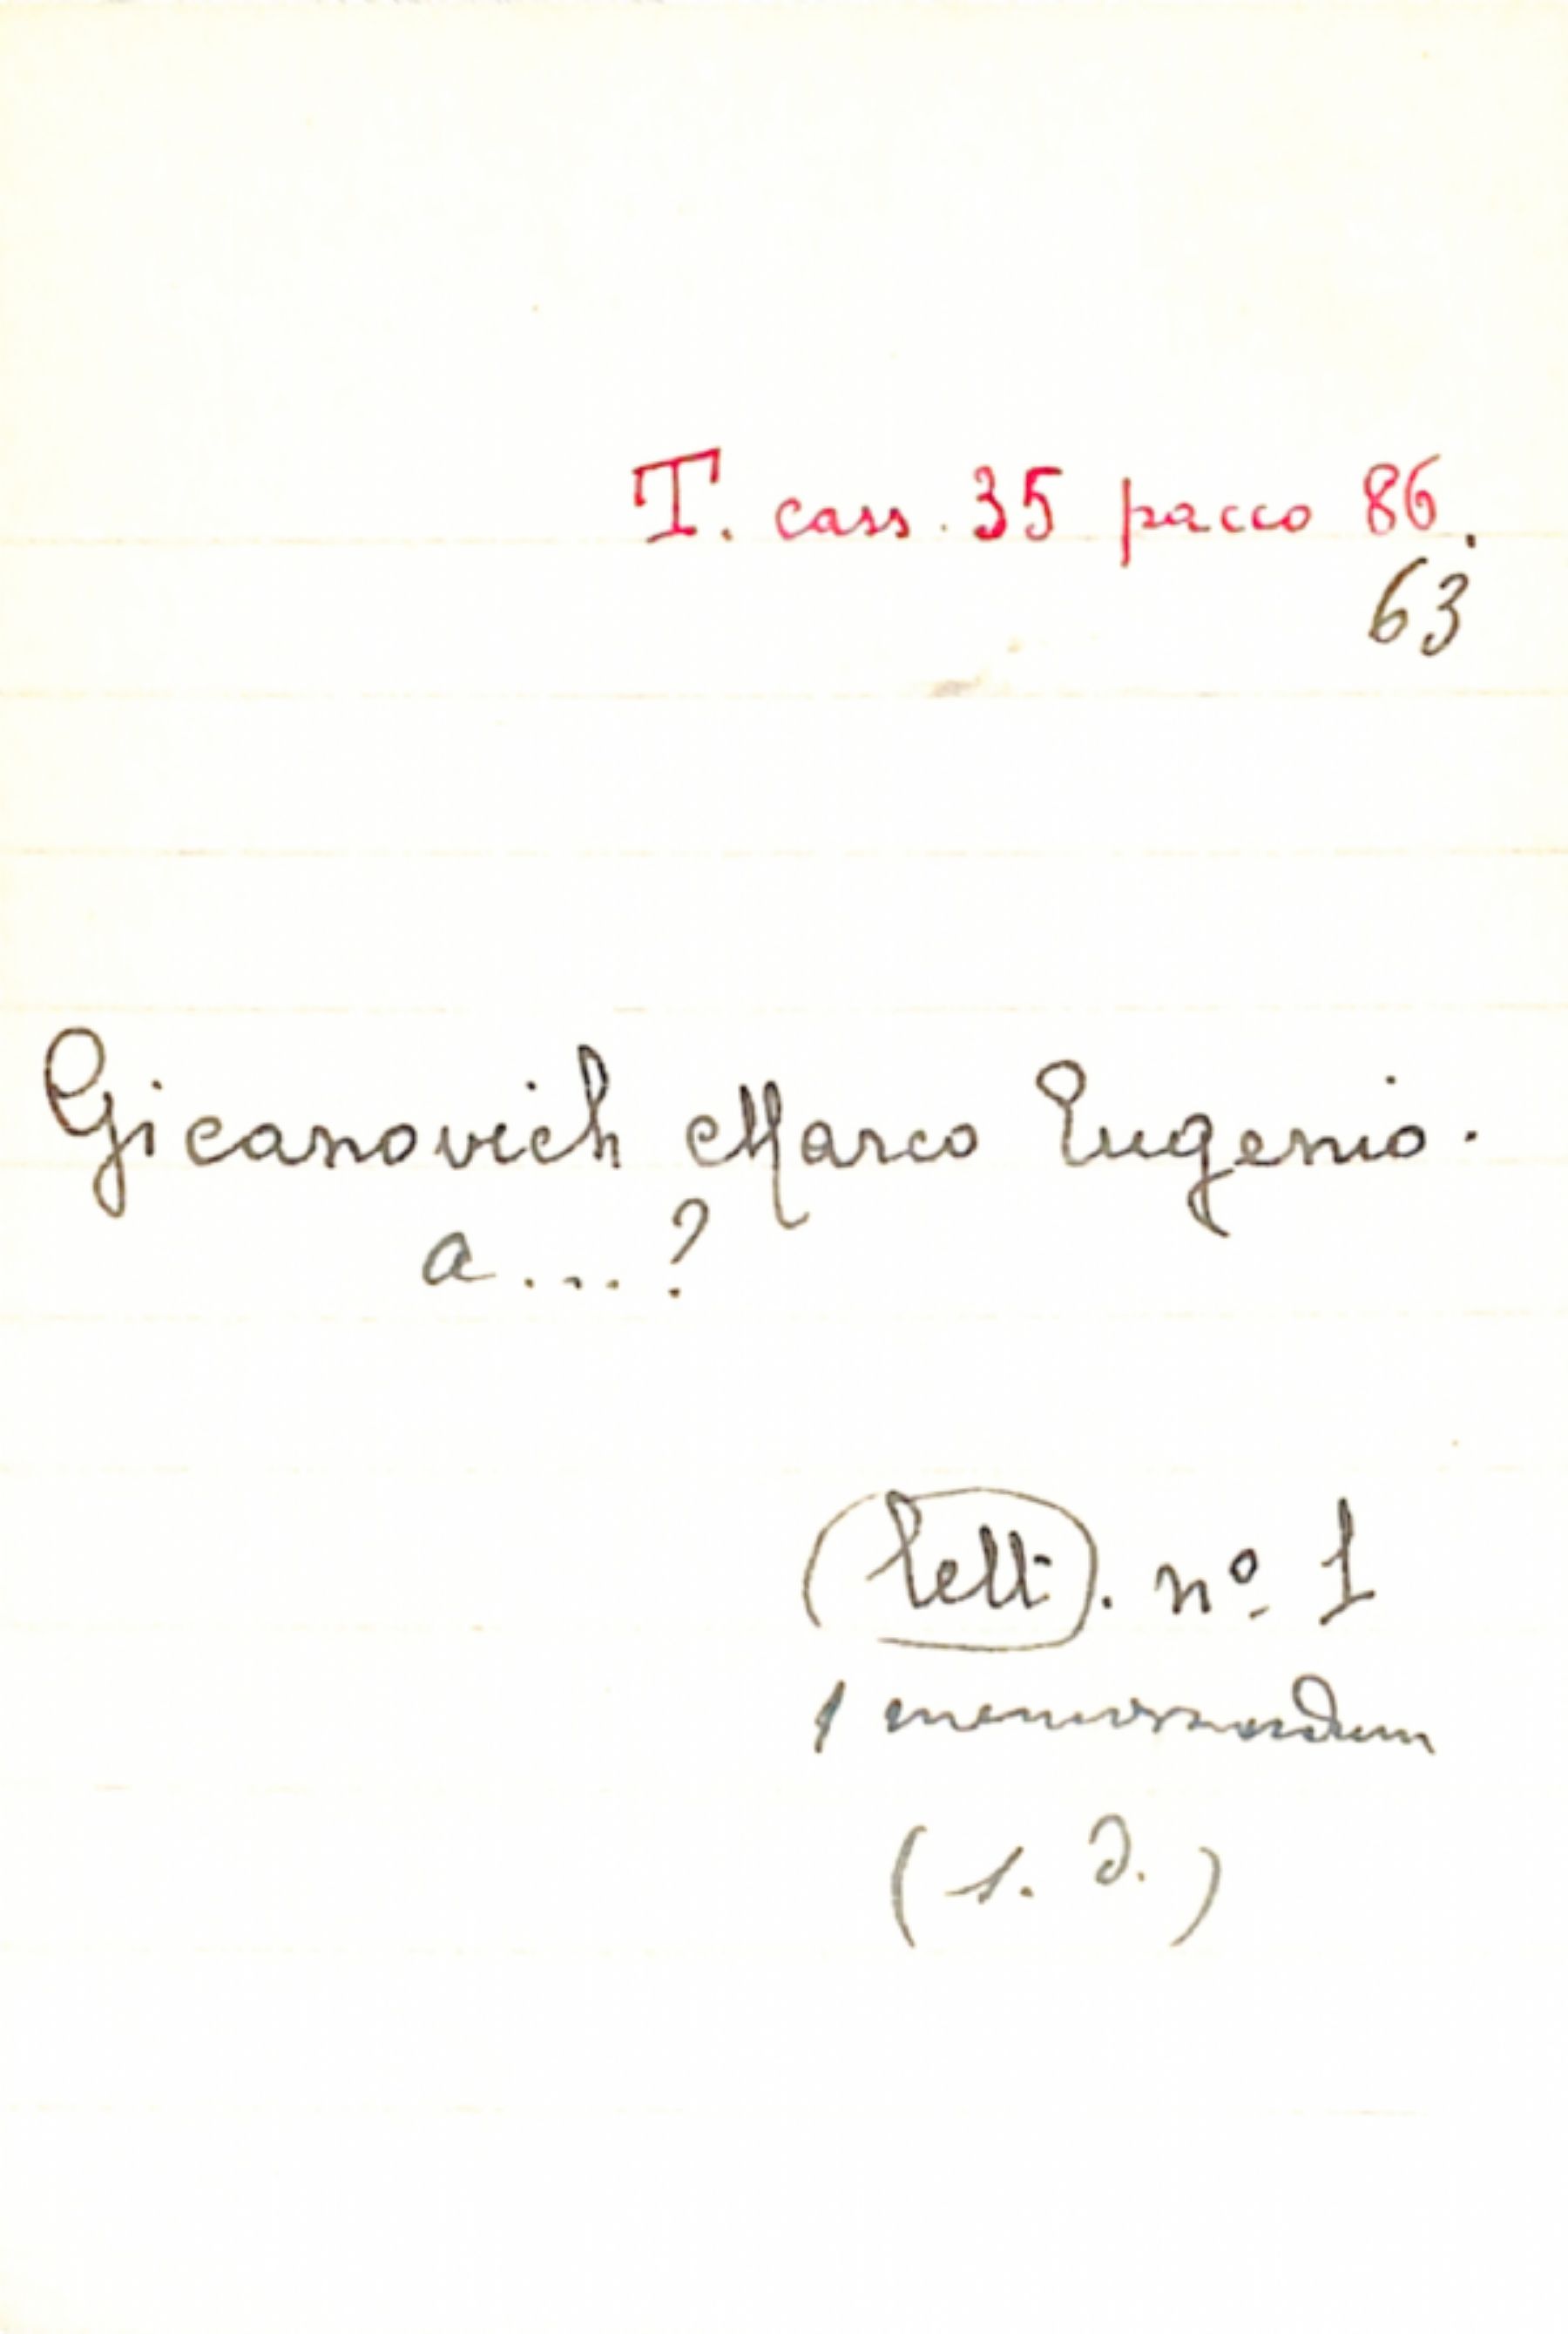 T. cass. 35 pacco 86.
63
Gicanovich Marco Eugenio.
a....?
(lett.). nº 1
1 memorandum
(s. d.)